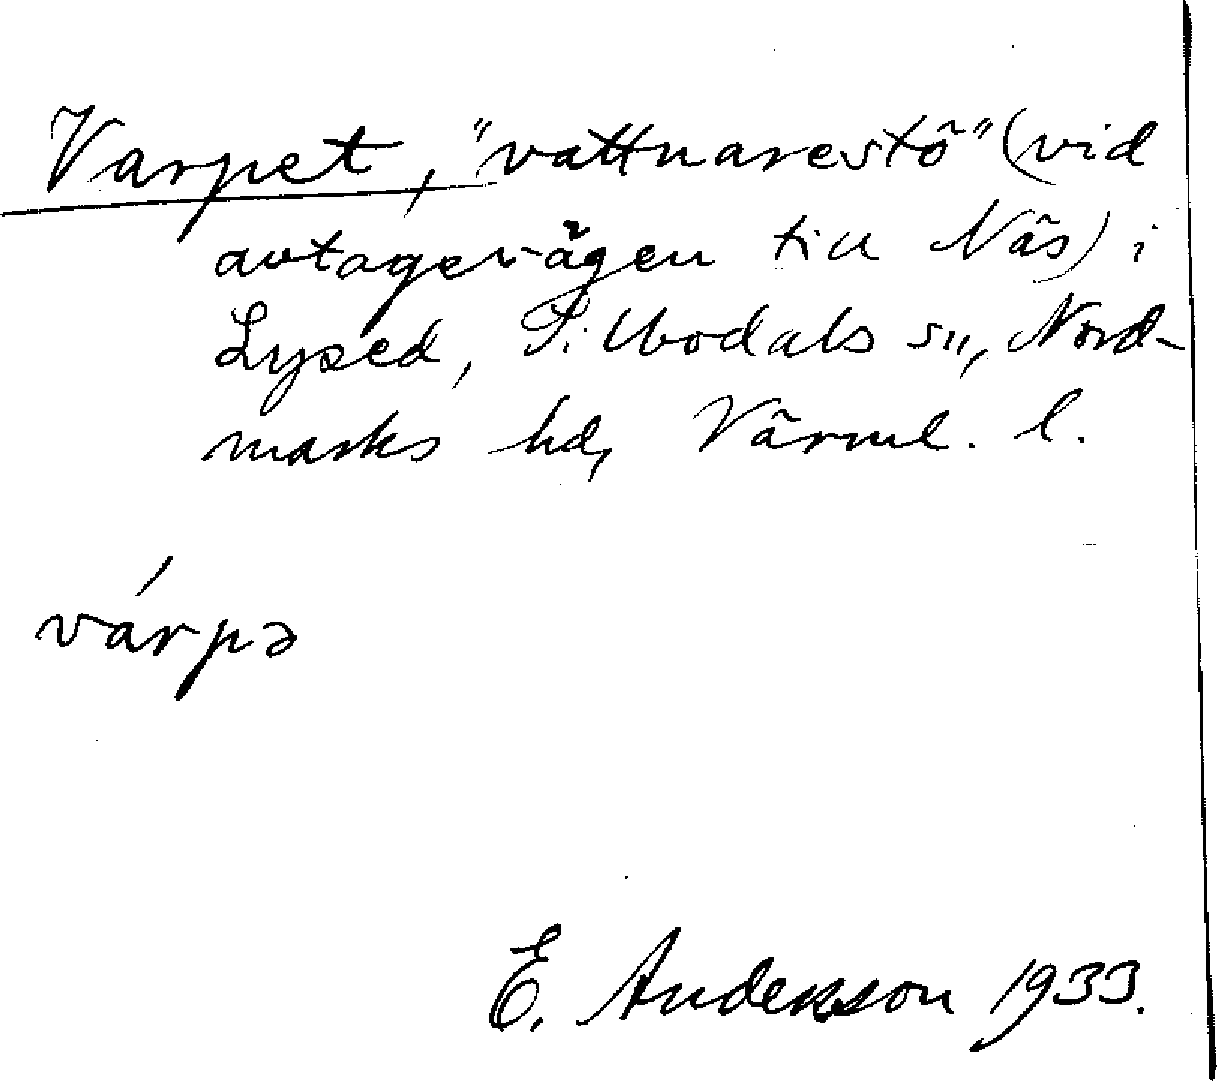 Varpet, "vattnarestö" (vid
avtagervägen till Näs) i
Lysed, Sillbodals sn, Nord-
marks hd, Värml. l.
várpə
E. Anderson 1933.